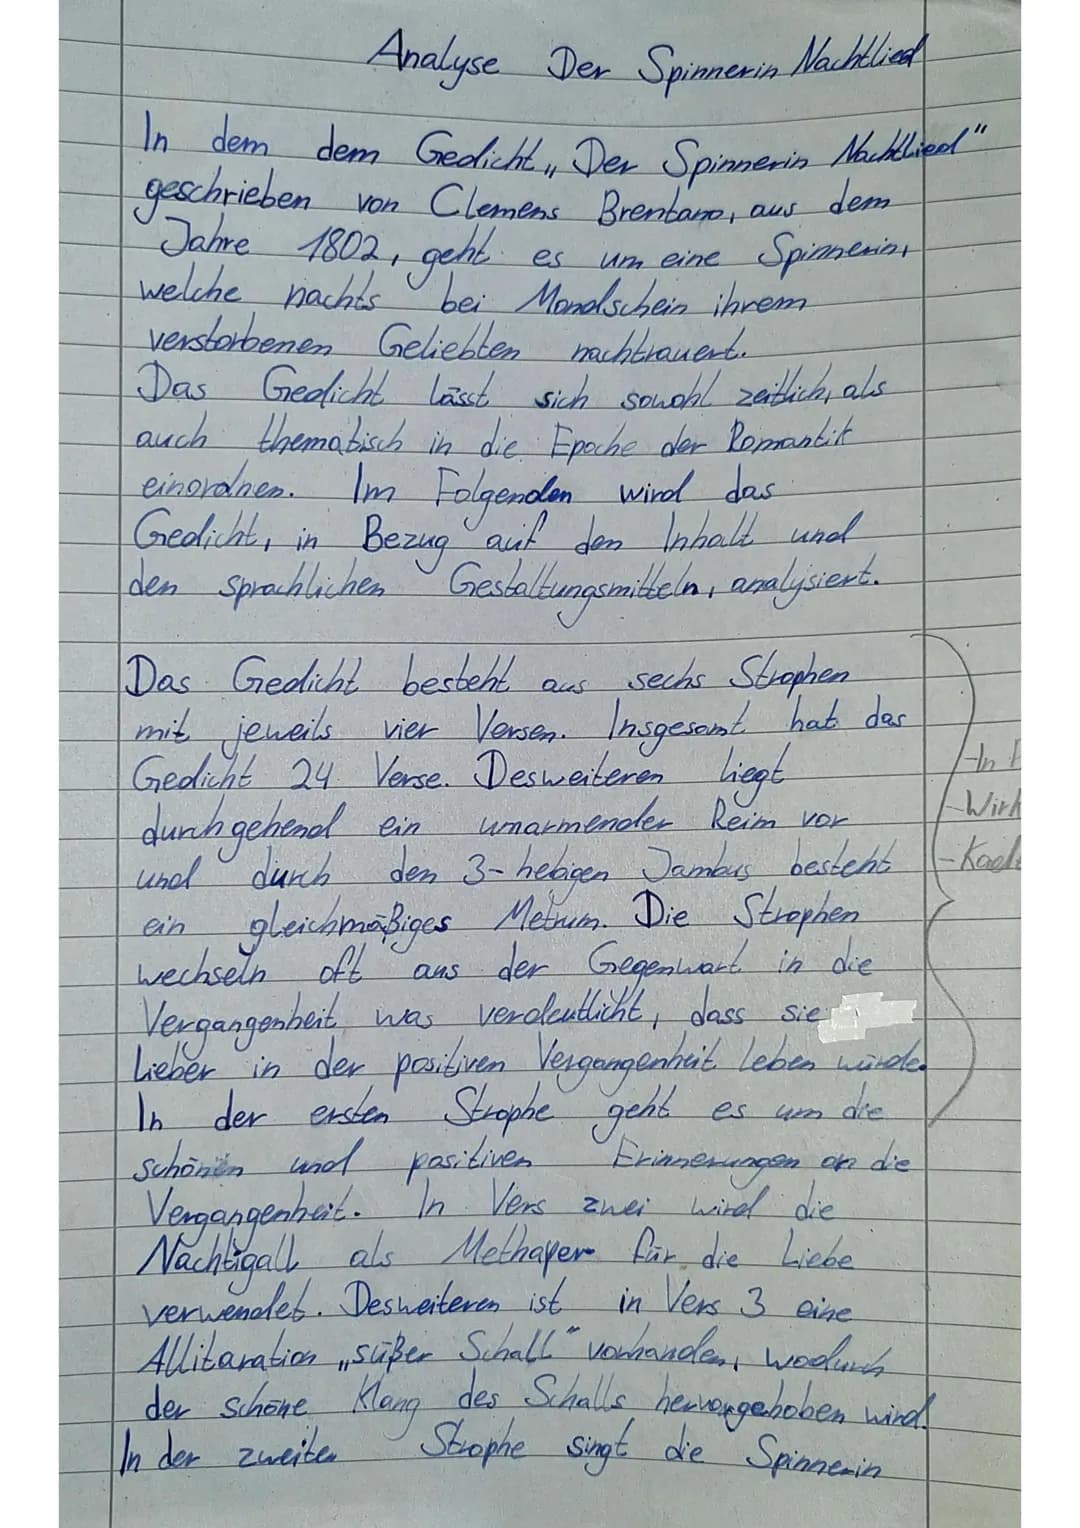 Analyse Der Spinnerin Nachtlied
In dem dem Gedicht „Der Spinnerin Nachtlied"
geschrieben von Clemens Brentano, aus dem
Jahre 1802, geht es um eine Spinnerin,
welche nachts bei Mondschein ihrem
verstorbenen Geliebten nachtrauert.
Das Gedicht lässt sich sowohl zeitlich, als
auch thematisch in die Epoche der Romantik
einordnen. Im Folgenden wird das
Gedicht, in Bezug auf den Inhalt und
den sprachlichen Gestaltungsmitteln, analysiert.
Das Gedicht besteht aus sechs Strophen
mit jeweils vier Versen. Insgesamt hat das
Gedicht 24 Verse. Desweiteren liegt
durchgehend ein umarmender Reim vor
und durch den 3-hebigen Jambus besteht
ein gleichmäßiges Metrum. Die Strophen
wechseln oft aus der Gegenwart in die
Vergangenheit was verdeutlicht, dass sie
lieber in der positiven Vergangenheit leben würde.
In der ersten Strophe geht es um die
schönen und positiven Erinnerungen an die
Vergangenheit. In Vers zwei wird die
Nachtigall als Methaper für die Liebe
verwendet. Desweiteren ist in Vers 3 eine
Allitaration „süßer Schall" vorhanden, wodurch
der schöne Klang des Schalls hervorgehoben wird.
In der zweiten Strophe singt die Spinnerin
-In
-Wirk